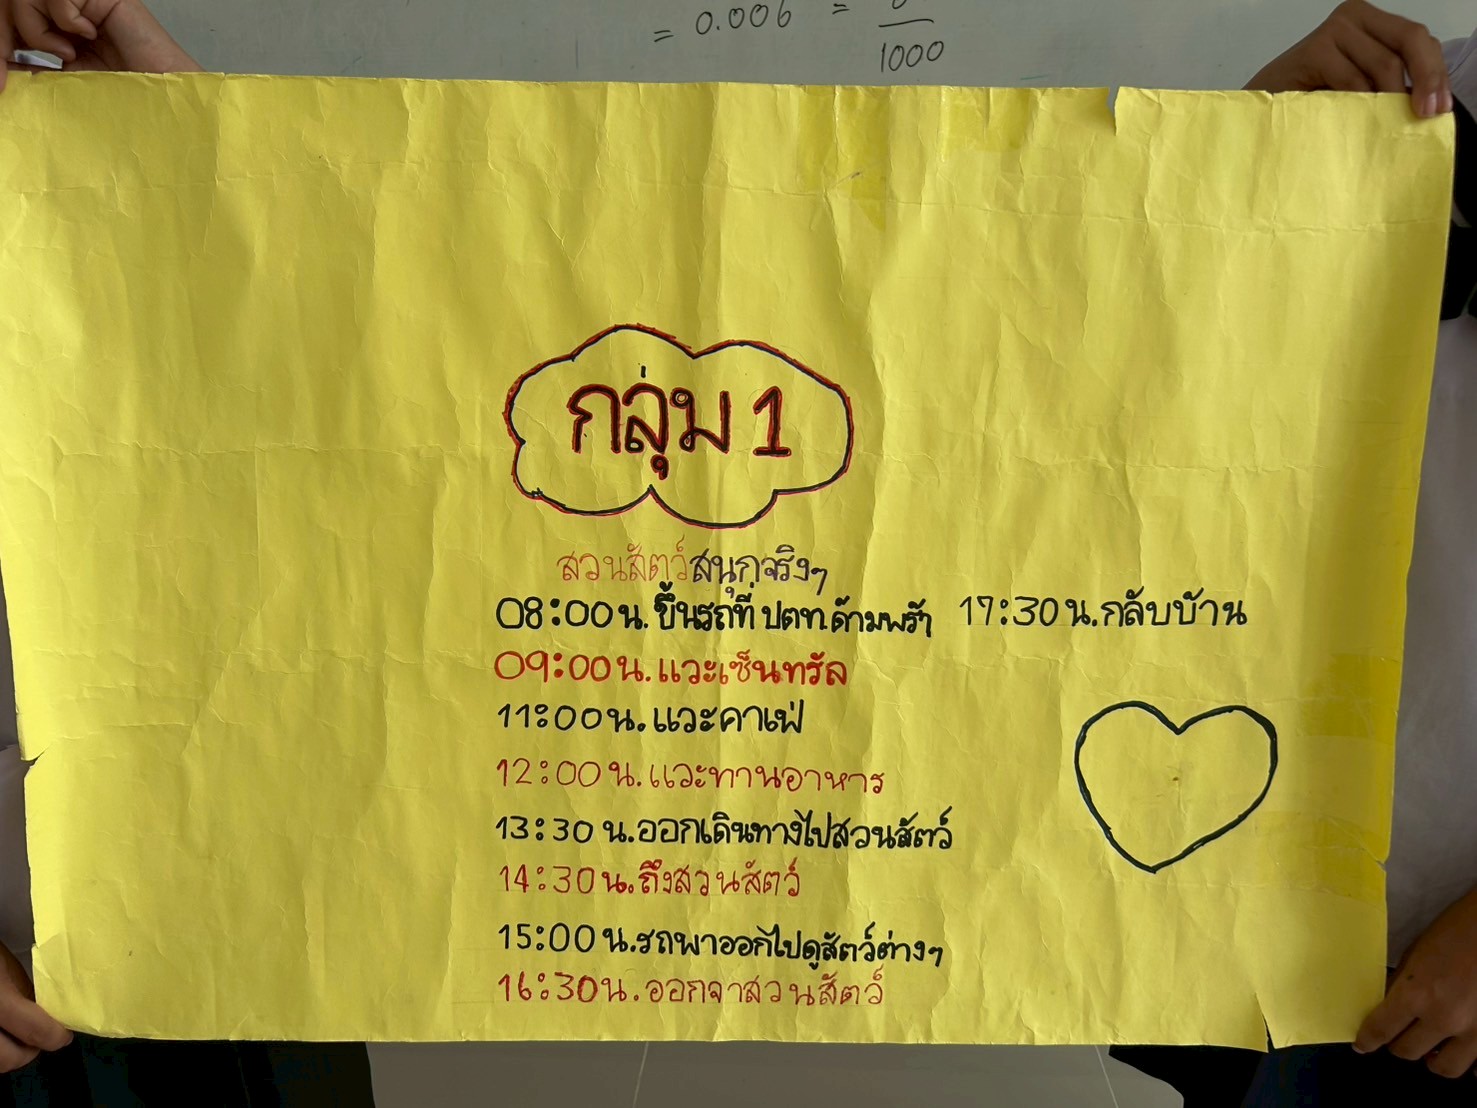 = 0.006 =
1000
กลุ่ม 1
สวนสัตว์สนุกจริงๆ
08:00 น. ขึ้นรถที่ ปตท. ด้ามพร้า
09:00 น. แวะเซ็นทรัล
11:00 น. แวะคาเฟ่
12:00 น. แวะทานอาหาร
13:30 น. ออกเดินทางไปสวนสัตว์
14:30 น. ถึงสวนสัตว์
15:00 น. รถพาออกไปดูสัตว์ต่างๆ
16:30 น. ออกจาสวนสัตว์
17:30 น. กลับบ้าน